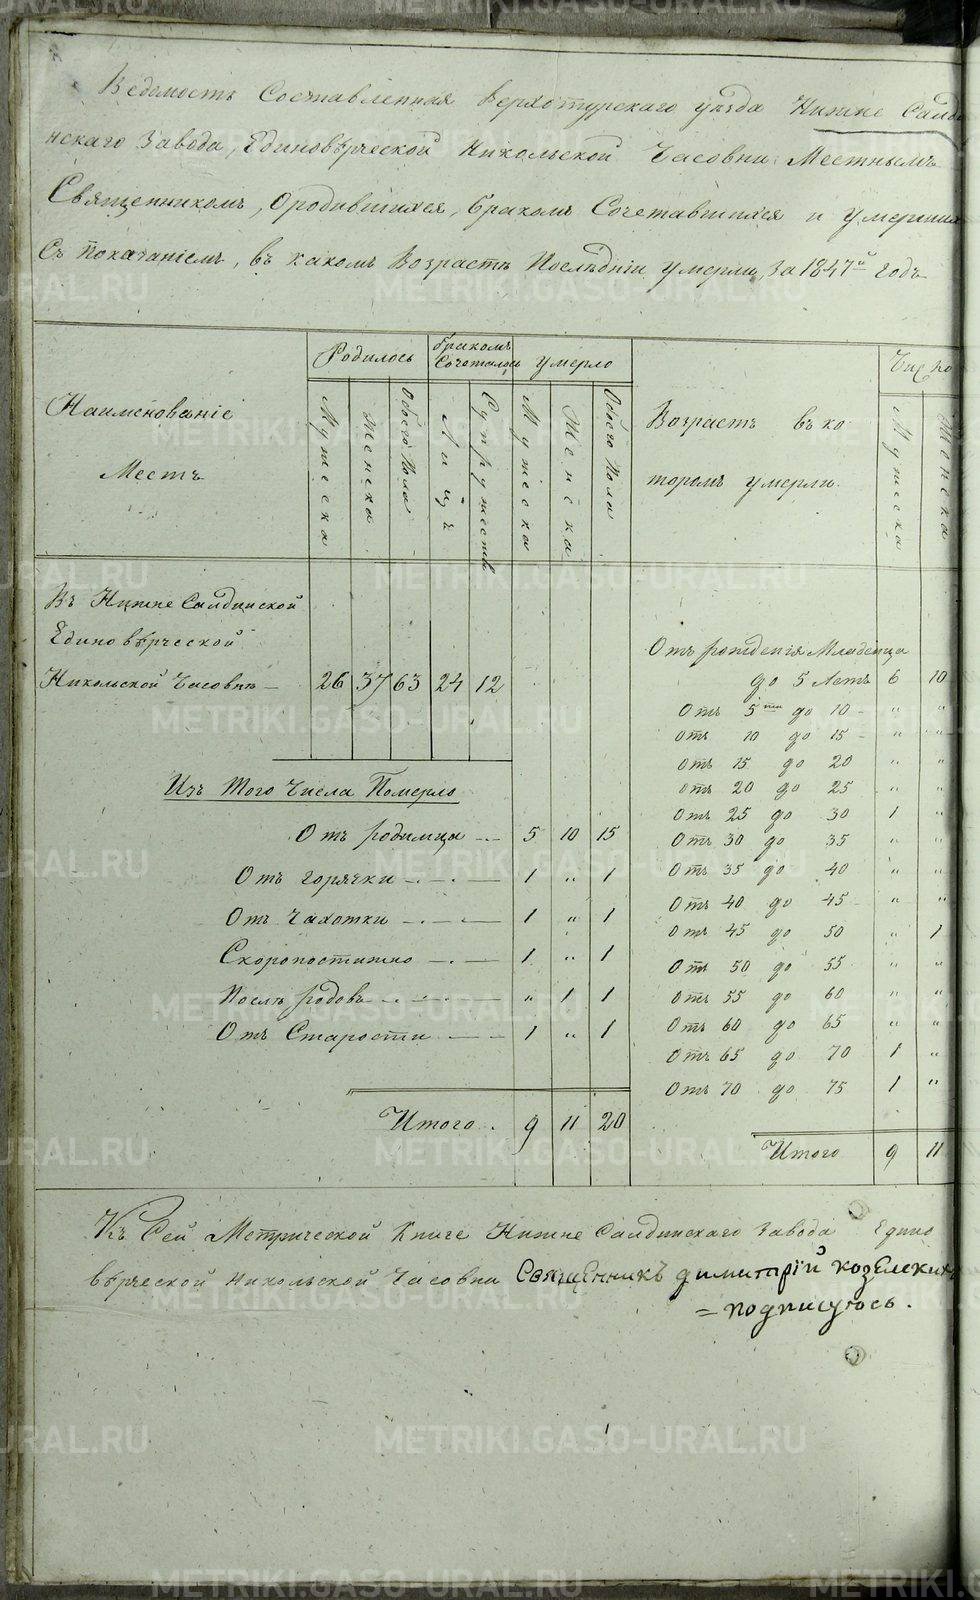 Ведомость Составленная Верхотурскаго уѣзда Нижне Салди
нскаго Завода, Единовѣрческой Никольской Часовни Местнымъ
Священникомъ, О родившихся, браком Сочетавшихся и умерших
Съ показаніемъ, въ каком Возрастѣ Послѣдніи умерли, за 1847й годъ
Наименованіе
Местъ
Родилось
Мужеска
Женска
Обоего Пола
Браком Сочеталось
Лицъ
Супружествъ
Умерло
Мужеска
Женска
Обоего Пола
Возрастъ въ ко
тором умерли.
Число
Мужеска
Женска
Въ Нижне Салдинской
Единовѣрческой
Никольской Часовнѣ — 26 37 63 24 12
Изъ Того Числа Померло
Отъ родимца — 5 10 15
Отъ горячки — 1 „ 1
Отъ Чахотки — 1 „ 1
Скоропостижно — 1 „ 1
Послѣ родовъ — „ 1 1
Отъ Старости — 1 „ 1
Итого. 9 11 20
Отъ рожденія Младенца
до 5 Летъ 6 10
Отъ 5ти до 10 „ „
Отъ 10 до 15 „ „
Отъ 15 до 20 „ „
Отъ 20 до 25 „ „
Отъ 25 до 30 1 „
Отъ 30 до 35 „ „
Отъ 35 до 40 „ „
Отъ 40 до 45 „ „
Отъ 45 до 50 „ 1
Отъ 50 до 55 „ „
Отъ 55 до 60 „ „
Отъ 60 до 65 „ „
Отъ 65 до 70 1 „
Отъ 70 до 75 1 „
Итого 9 11
Къ Сей Метрической Книге Нижне Салдинскаго Завода Едино
вѣрческой Никольской Часовни Священникъ димитрій козелских
= подписуюсь.
METRIKI.GASO-URAL.RU